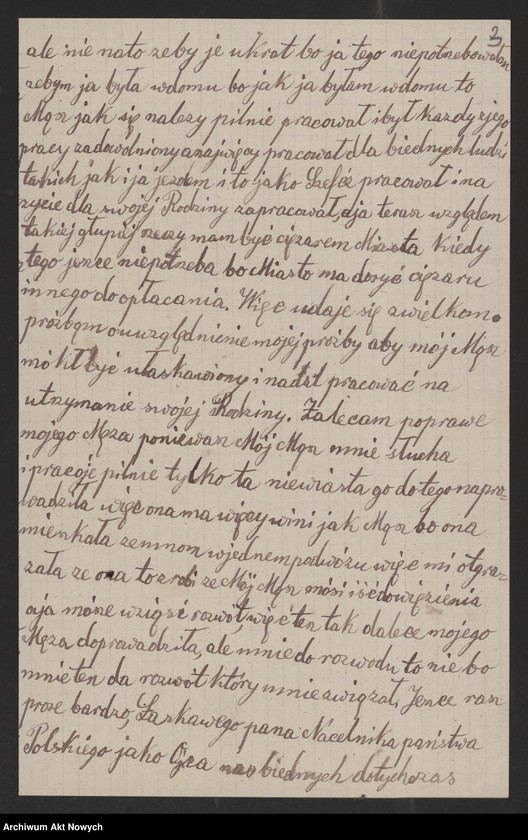 3
ale nie nato zeby je ukrat bo ja tego niepotrzebowałam
zebym ja była wdomu bo jak ja byłam wdomu to
Mąz jak się nalezy pilnie pracował i był Kazdy zjego
pracy zadowolniony anajwięcy pracował dla biednych ludzi
takich jak i ja jezdem i to jako Szefć pracował i na
zycie dla swojej Rodziny zapracował, a ja teraz względem
takiej głupiij rzeczy mam być cięzarem Miasta Kiedy
tego jesce niepotrzeba bo Miasto ma dosyć cięzaru
innego do opłacania. Więc udaje się zwielkom
prózbąm o uwzględnienie mojej prózby aby mój Mąz
mókł być ułaskawiony i nadal pracować na
utrzymanie swojej Rodziny. Zalecam poprawe
mojego Męza poniewaz Mój Mąz mnie słucha
i pracóje pilnie tylko ta niewiasta go do tego napro=
wadziła więc ona ma więcy wini jak Mąz bo ona
mieszkała zemnom wjednem podwózu więc mi otgra=
zała ze ona to zrobi ze Mój Mąz mósi iść dowięzienia
aja móze wziąść rozwót, więc ten tak dalece mojego
Męza doprowadziła, ale mnie do rozwodu to nie bo
mnie ten da rozwót który mnie związał. Jesce raz
prose bardzo, Łaskawego pana Nacelnika państwa
Polskiego jako Ojca biednych dotychczas
Archiwum Akt Nowych